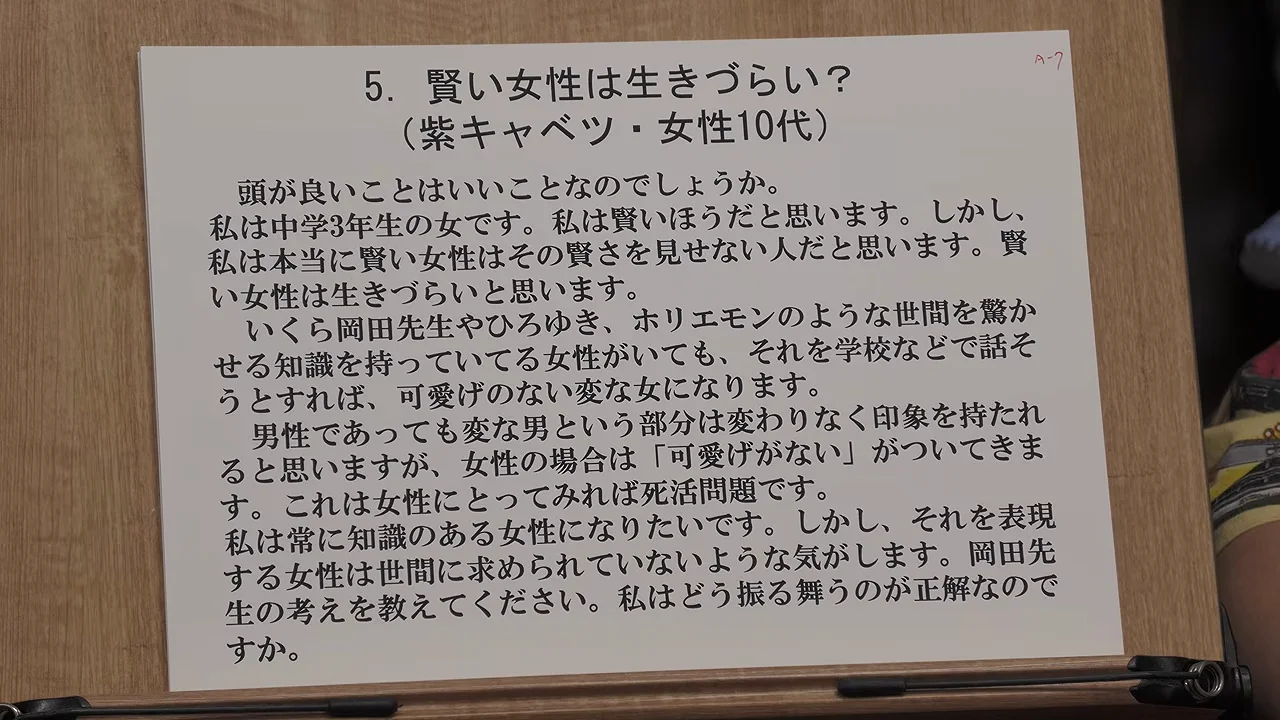 A-7
5. 賢い女性は生きづらい？
（紫キャベツ・女性10代）
頭が良いことはいいことなのでしょうか。
私は中学3年生の女です。私は賢いほうだと思います。しかし、
私は本当に賢い女性はその賢さを見せない人だと思います。賢
い女性は生きづらいと思います。
いくら岡田先生やひろゆき、ホリエモンのような世間を驚か
せる知識を持っていてる女性がいても、それを学校などで話そ
うとすれば、可愛げのない変な女になります。
男性であっても変な男という部分は変わりなく印象を持たれ
ると思いますが、女性の場合は「可愛げがない」がついてきま
す。これは女性にとってみれば死活問題です。
私は常に知識のある女性になりたいです。しかし、それを表現
する女性は世間に求められていないような気がします。岡田先
生の考えを教えてください。私はどう振る舞うのが正解なので
すか。